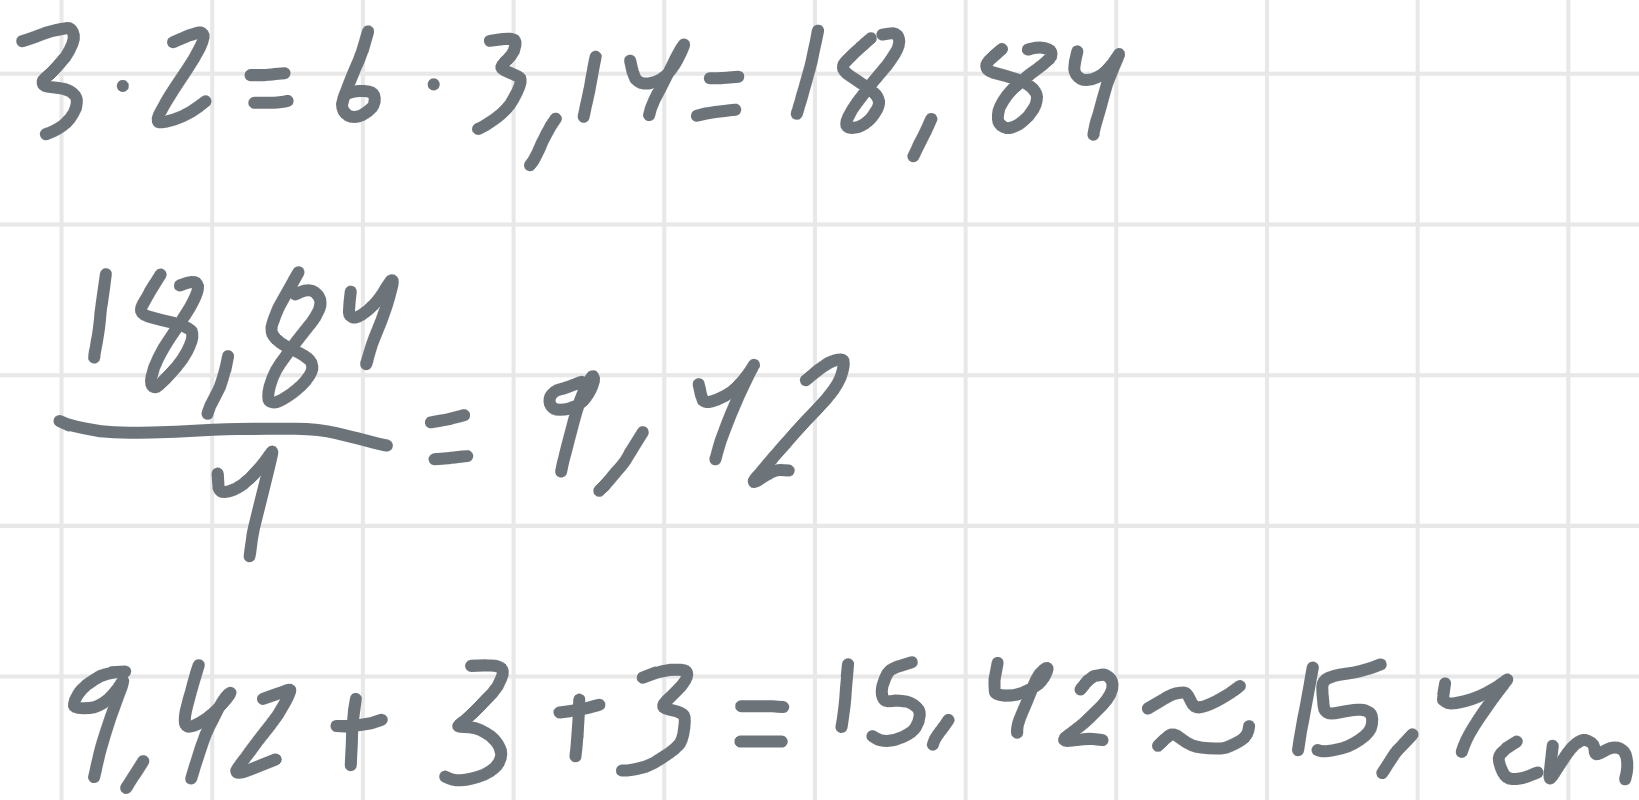 3·2=6·3,14=18,84
18,84/4=9,42
9,42+3+3=15,42≈15,4cm